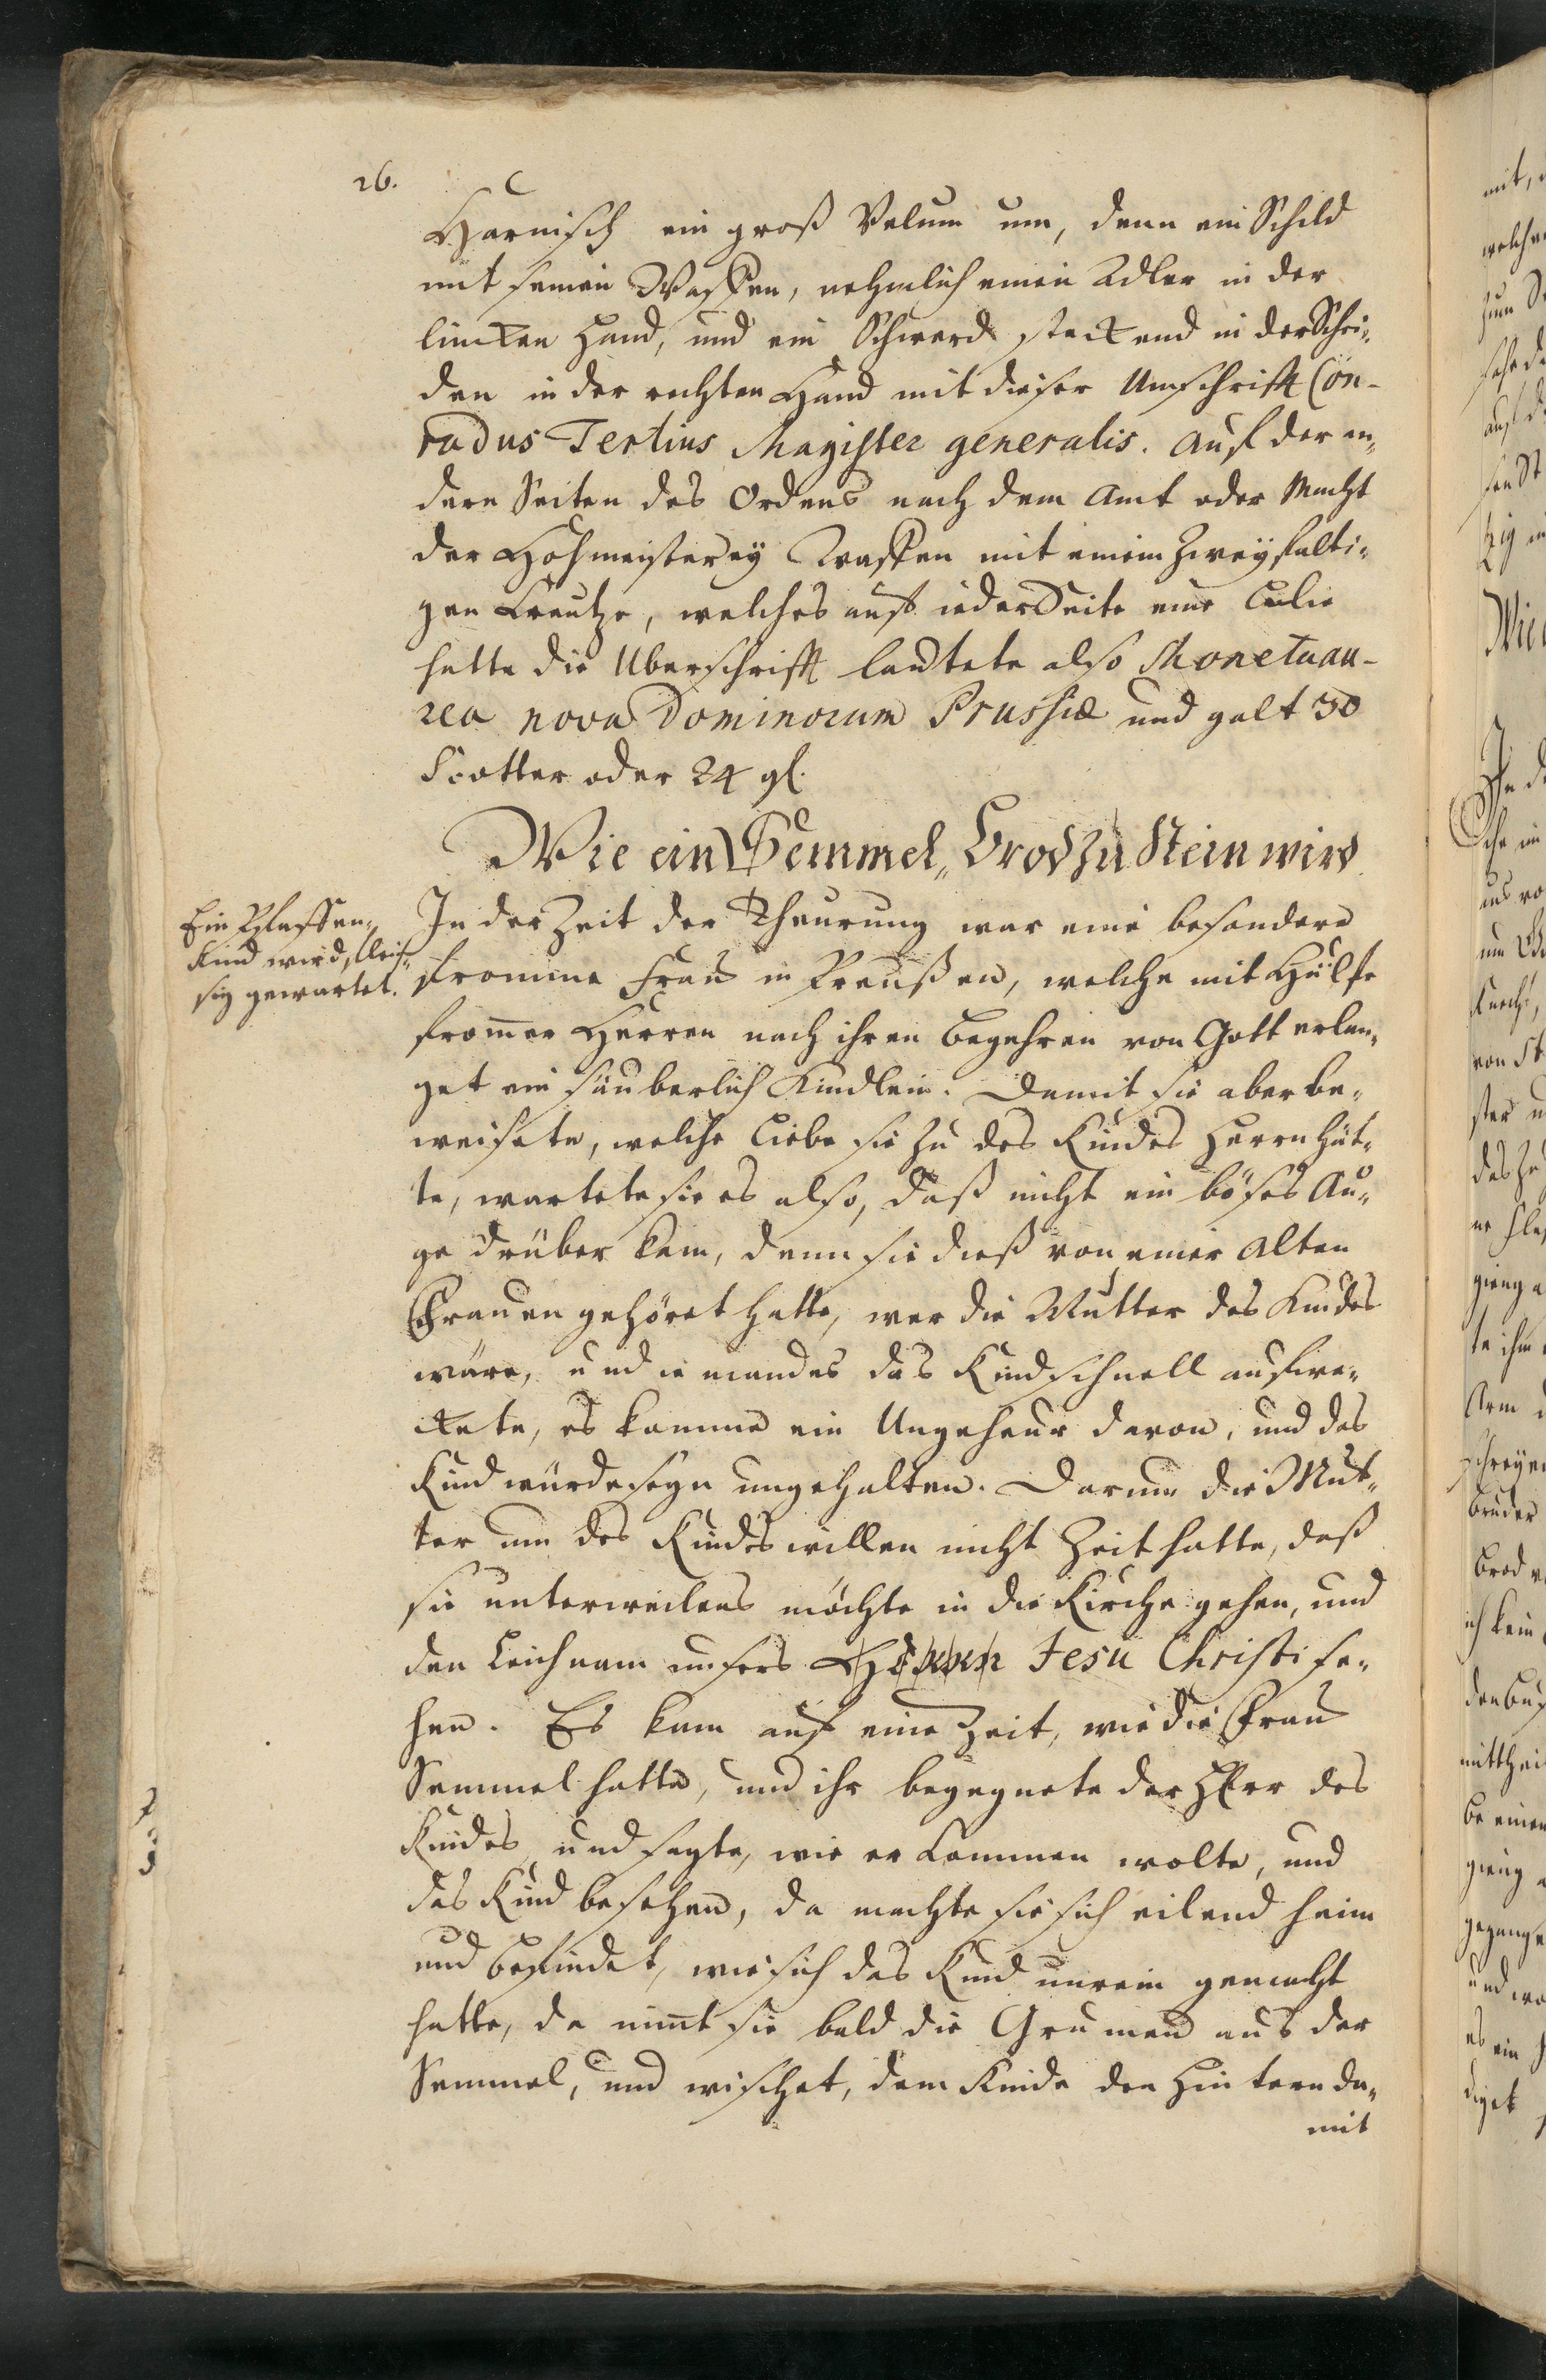 26.
Harnisch ein groß Velum um, denn ein Schild
mit seinen Waffen, nehmlich einen Adler in der
lincken Hand, und ein Schwerd steckend in der Schei„
den in der rechten Hand mit dieser Umschrifft Con-
radus Tertius Magister generalis. Auf der an„
dern Seiten des Ordens nach dem Amt oder Macht
der Hohmeisterey Waffen mit einem zweyfalti„
gen Creutze, welches auf ieder Seite eine Lilie
hatte die Uberschrifft lautete also Moneta au-
rea nova Dominorum Prussiæ und galt 30
Scotter oder 24 gl.
Wie ein Semmel„Brod zu Stein wird
Ein Pfaffen„
Kind wird fleis„
sig gewartet.
In der Zeit der Theurung war eine besondere
fromme Frau in Preußen, welche mit Hülfe
from̄er Herren nach ihren Begehren von Gott erlan„
get ein säuberlich Kindlein. Damit sie aber be„
weisete, welche Liebe sie zu des Kindes Herrn hät„
te, wartete sie es also, daß nicht ein böses Au„
ge drüber kam, denn sie dieß von einer alten
Frauen gehöret hatte, wer die Mutter des Kindes
wäre, und iemandes das Kind schnell aufwe„
ckete, es komme ein Ungeheur davon, und das
Kind würde seyn ungehalten. Darum die Mut„
ter um des Kindes willen nicht Zeit hatte, daß
sie unterweilens möchte in die Kirche gehen, und
den Leichnam unsers Herrn Jesu Christi se„
hen. Es kam auf eine Zeit, wie die Frau
Semmel hatte, und ihr begegnete der Herr des
Kindes und sagte, wie er kommen wolte, und
das Kind besehen, da machte sie sich eilend heim
und befindet, wie sich das Kind unrein gemacht
hatte, da nim̄t sie bald die Grumen aus der
Semmel, und wischet, dem Kinde den Hintern da„
mit